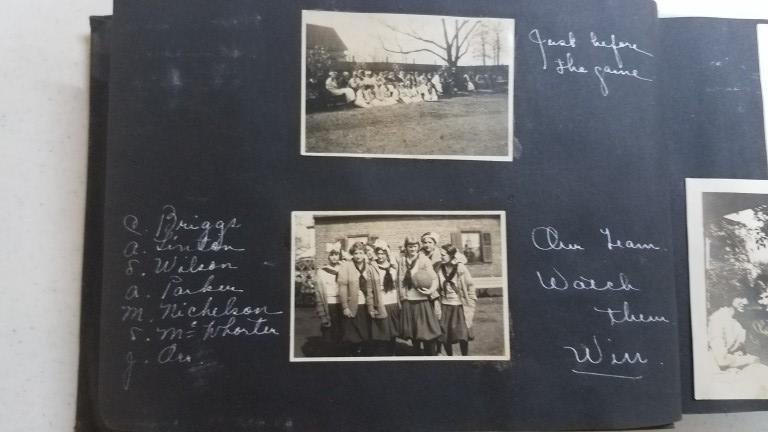 Just before
the game
C. Briggs
A. Linton
S. Wilson
A. Parker
M. Nichelson
S. Mc Whorter
J. Orr
Our team.
Watch
them
Win.